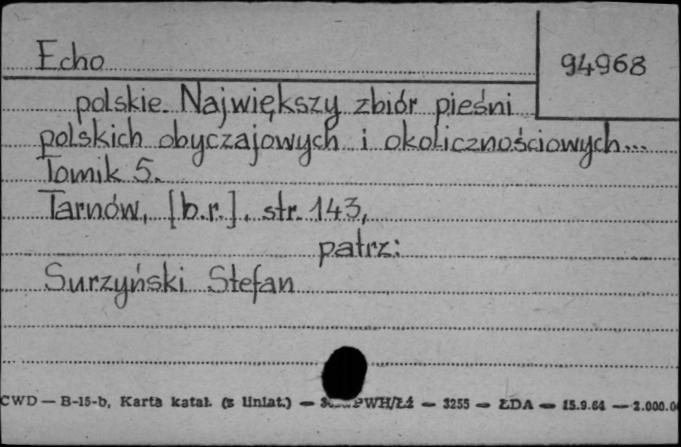 Echo
94968
polskie. Największy zbiór pieśni
polskich obyczajowych i okolicznościowych...
Tomik 5.
Tarnów, [b.r.], str. 143,
patrz:
Surzyński Stefan
CWD — B-15-b, Karta katal. (z liniat.) — PWH/Łź — 3255 — ŁDA — 15.9.64 — 2.000.0